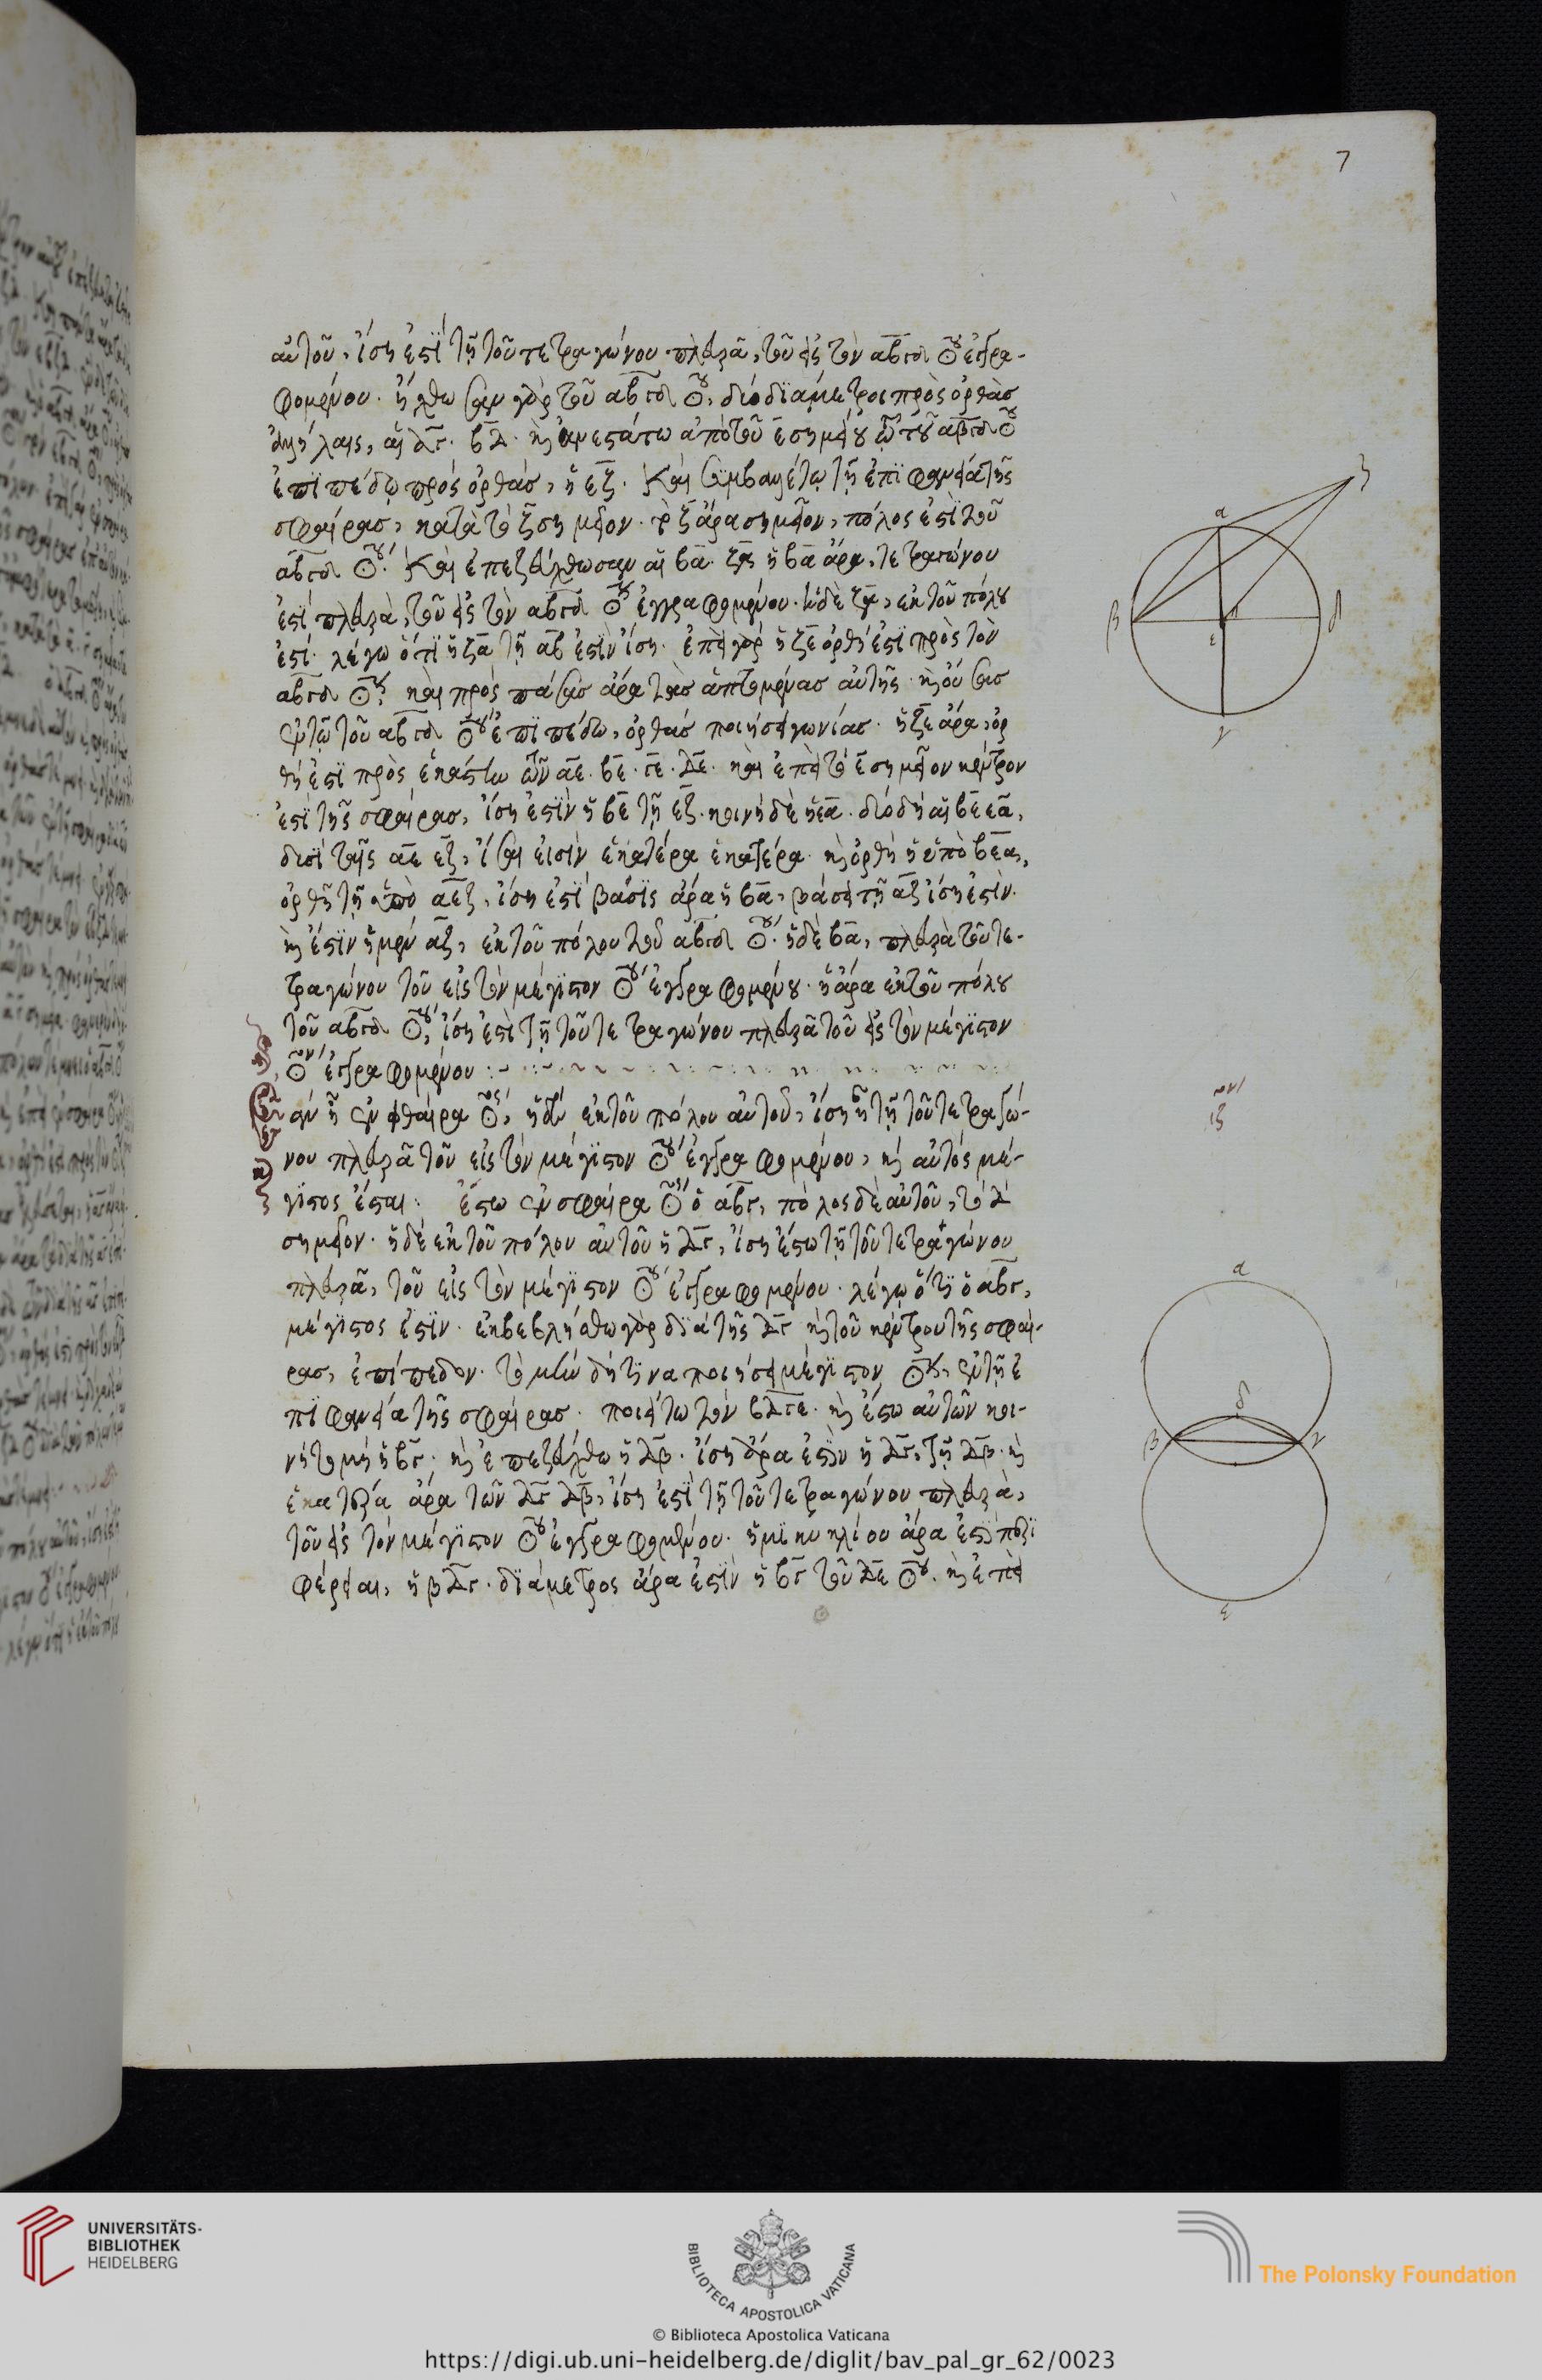 7
αὐτοῦ, ἴση ἐστὶ τῇ τοῦ τετραγώνου πλευρᾷ, τοῦ εἰς τὸν αβγδ ☉ου ἐγγρα-
φομένου. ἤχθωσαν γὰρ τοῦ αβγδ ☉ου, δύο διάμετροι πρὸς ὀρθὰς
ἀλλήλαις, αἱ αγ. βδ. καὶ ἀνεστάτω ἀπὸ τοῦ ε σημείου τῷ τοῦ αβγδ ☉ου
ἐπιπέδῳ πρὸς ὀρθάς, ἡ εζ. καὶ συμβαλλέτω τῇ ἐπιφανείᾳ τῆς
σφαίρας, κατὰ τὸ ζ σημεῖον. τὸ ζ ἄρα σημεῖον, πόλος ἐστὶ τοῦ
αβγδ ☉ου. καὶ ἐπεζεύχθωσαν αἱ βα. ζα. ἡ βα ἄρα, τετραγώνου
ἐστὶ πλευρὰ, τοῦ εἰς τὸν αβγδ ☉ον ἐγγραφομένου. ἡ δὲ ζα, ἐκ τοῦ πόλου
ἐστί. λέγω ὅτι ἡ ζα τῇ αβ ἐστὶν ἴση. ἐπεὶ γὰρ ἡ ζε ὀρθή ἐστι πρὸς τὸν
αβγδ ☉ον. καὶ πρὸς πάσας ἄρα τὰς ἁπτομένας αὐτῆς. καὶ οὔσας
ἐν τῷ τοῦ αβγδ ☉ου ἐπιπέδω, ὀρθὰς ποιήσει γωνίας. ἡ ζε ἄρα, ὀρ
θή ἐστι πρὸς ἑκάστην τῶν αε. βε. γε. δε. καὶ ἐπεὶ τὸ ε σημεῖον κέντρον
ἐστὶ τῆς σφαίρας, ἴση ἐστὶν ἡ βε τῇ εζ. κοινὴ δὲ ἡ εα. δύο δὴ αἱ βε εα,
δυσὶ ταῖς αε εζ, ἴσαι εἰσὶν ἑκατέρα ἑκατέρα. καὶ ὀρθὴ ἡ ὑπὸ βεα,
ὀρθῇ τῇ ὑπὸ αεζ, ἴση ἐστὶ βάσις ἄρα ἡ βα, βάσει τῇ αζ ἴση ἐστὶν.
καὶ ἔστιν ἡ μὲν αζ, ἐκ τοῦ πόλου τοῦ αβγδ ☉ου. ἡ δὲ βα, πλευρὰ τοῦ τε-
τραγώνου τοῦ εἰς τὸν μέγιστον ☉ον ἐγγραφομένου. ἡ ἄρα ἐκ τοῦ πόλου
τοῦ αβγδ ☉ου, ἴση ἐστὶ τῇ τοῦ τετραγώνου πλευρᾷ τοῦ εἰς τὸν μέγιστον
☉ον ἐγγραφομένου :~
αν ᾖ ἐν σφαίρα ☉ος, ἡ δὲ ἐκ τοῦ πόλου αὐτοῦ, ἴση ᾖ τῇ τοῦ τετραγώ-
νου πλευρᾷ τοῦ εἰς τὸν μέγιστον ☉ον ἐγγραφομένου, καὶ αὐτὸς μέ-
γιστος ἔσται. ἔστω ἐν σφαίρα ☉ος ὁ αβγ, πόλος δὲ αὐτοῦ, τὸ δ
σημεῖον. ἡ δὲ ἐκ τοῦ πόλου αὐτοῦ ἡ δγ, ἴση ἔστω τῇ τοῦ τετραγώνου
πλευρᾷ, τοῦ εἰς τὸν μέγιστον ☉ον ἐγγραφομένου. λέγω ὅτι ὁ αβγ,
μέγιστός ἐστιν. ἐκβεβλήσθω γὰρ διὰ τῆς δγ καὶ τοῦ κέντρου τῆς σφαί-
ρας, ἐπίπεδον. τομὴν δή τινα ποιήσει μέγιστον ☉ον, ἐν τῇ ἐ
πιφανεία τῆς σφαίρας. ποιείτω τὸν βδγε. καὶ ἔστω αὐτῶν κοι-
νὴ τομὴ ἡ βγ. καὶ ἐπεζεύχθω ἡ δβ. ἴση ἄρα ἐστὶν ἡ δγ, τῇ δβ. καὶ
ἑκατέρα ἄρα τῶν δγ δβ, ἴση ἐστὶ τῇ τοῦ τετραγώνου πλευρὰ,
τοῦ εἰς τὸν μέγιστον ☉ον ἐγγραφομένου. ἡμικυκλίου ἄρα ἐστὶ περι
φέρεια, ἡ βδγ. διάμετρος ἄρα ἐστὶν ἡ βγ τοῦ δε ☉ου. καὶ ἐπεὶ
ζ
α
β
δ
ε
γ
ιζον
α
δ
β
γ
ε
UNIVERSITÄTS-
BIBLIOTHEK
HEIDELBERG
BIBLIOTECA APOSTOLICA VATICANA
The Polonsky Foundation
© Biblioteca Apostolica Vaticana
https://digi.ub.uni-heidelberg.de/diglit/bav_pal_gr_62/0023